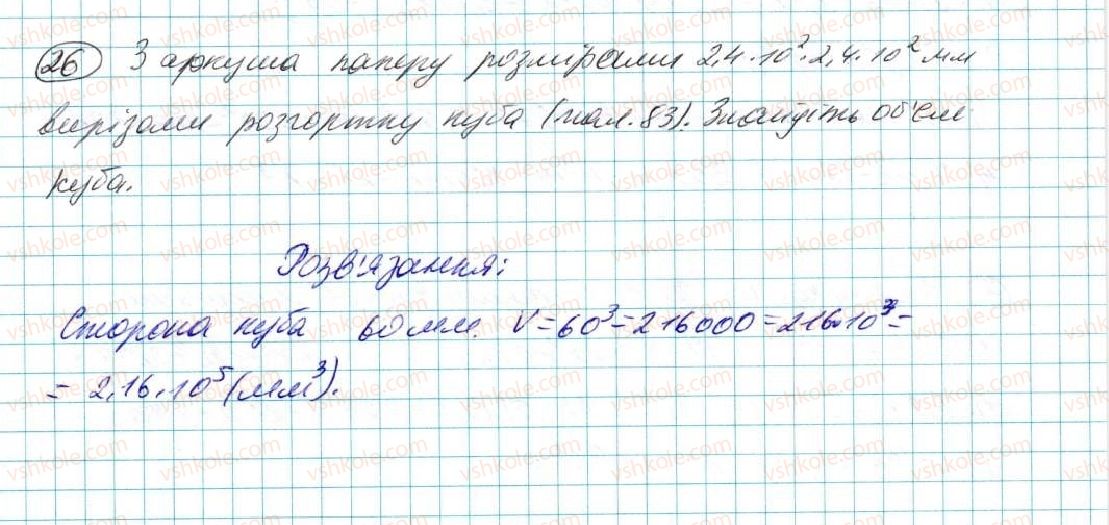 26 З аркуша паперу розмірами 2,4·10²·2,4·10² мм
вирізали розгортку куба (мал.83). Знайдіть об'єм
куба.
Розв'язання:
Сторона куба 60 мм. V=60³=216000=216·10³=
= 2,16·10⁵(мм³).